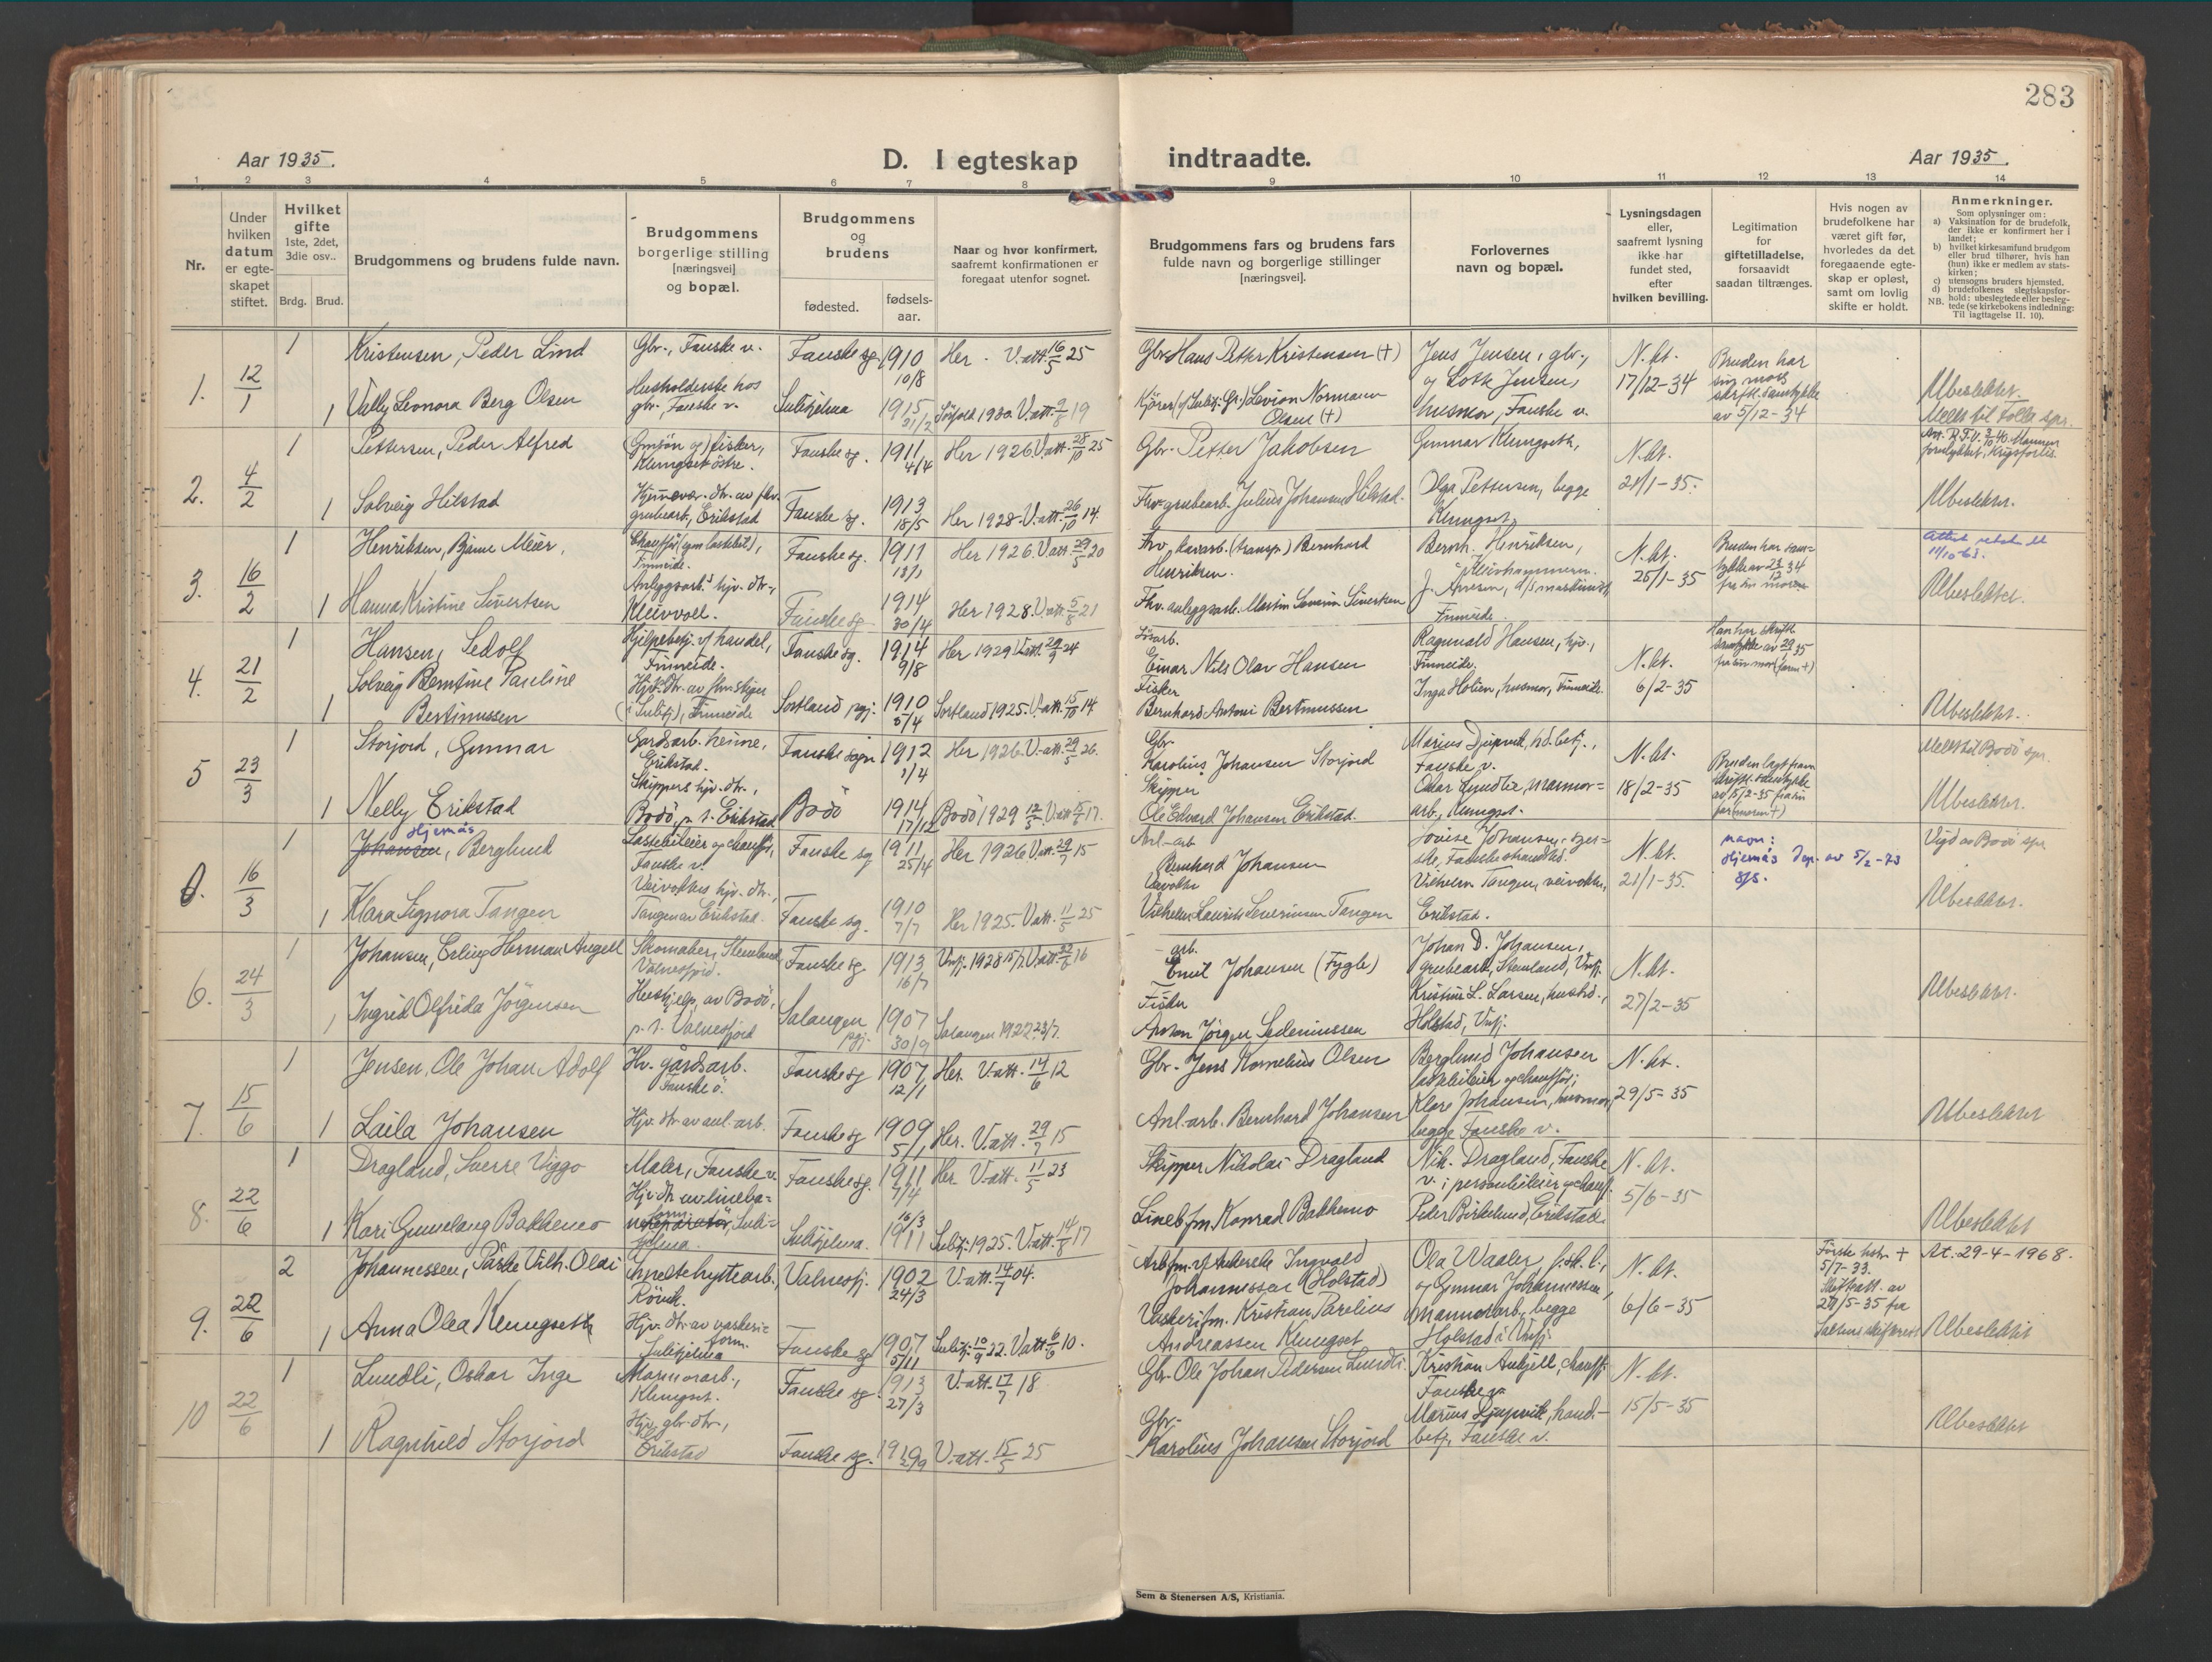 283
Aar 1935.
D. I egteskap indtraadte.
Aar 1935.
1 2 3 4 5 6 7 8 9 10 11 12 13 14
Nr.
Under hvilken datum er egte-skapet stiftet.
Hvilket gifte
1ste, 2det, 3die osv..
Brdg. Brud.
Brudgommens og brudens fulde navn.
Brudgommens borgerlige stilling [næringsvei] og bopæl.
Brudgommens og brudens
fødested.
fødsels-aar.
Naar og hvor konfirmert, saafremt konfirmationen er foregaat utenfor sognet.
Brudgommens fars og brudens fars fulde navn og borgerlige stillinger [næringsvei].
Forlovernes navn og bopæl.
Lysningsdagen eller, saafremt lysning ikke har fundet sted, efter hvilken bevilling.
Legitimation for giftetilladelse, forsaavidt saadan tiltrænges.
Hvis nogen av brudefolkene har været gift før, hvorledes da det foregaaende egte-skap er opløst, samt om lovlig skifte er holdt.
Anmerkninger.
Som oplysninger om:
a) Vaksination for de brudefolk, der ikke er konfirmert her i landet;
b) hvilket kirkesamfund brudgom eller brud tilhører, hvis han (hun) ikke er medlem av stats-kirken;
c) utensogns bruders hjemsted.
d) brudefolkenes slegtskapsfor-hold: ubeslegtede eller besleg-tede (se kirkebokens indledning: Til iagttagelse II. 10).
NB.
1. 12/1
1 Kristensen, Peder Lind
Gbr., Fauske v.
Fauske sg. 1910 10/8
Her. V.att. 16/5 25
Gbr. Hans Petter Kristensen (+)
Jens Jensen, gbr.,
og Lotte Jensen,
husmor, Fauske v.
N. kt.
17/12-34
Bruden har
samtykke
av 5/12-34
1 Vally Leonora Berg Olsen
Husholderske hos
gbr. Fauske v.
Sulitjelma 1915
1930. V.att. 9/8 19
Levion Normann
Olsen (+)
Ubeslektet.
2. 4/2
1 Pettersen, Peder Alfred
fisker,
Klungset østre.
Fauske sg. 1911 4/4
Her 1926. V.att. 28/10 25
Gbr. Petter Jakobsen
Gunnar Klungseth,
Olga Pettersen, begge
Klungset
N. kt.
21/1-35.
1 Solveig Hilstad
grubearb., Erikstad
Fauske sg. 1913 18/5
Her 1928. V.att. 26/10 14.
Fhv. grubearb. Julius Johansen Hilstad.
Ubeslektet.
3. 16/2
1 Henriksen, Bjarne Meier,
Finneide.
Fauske sg. 1911 13/1
Her 1926. V.att. 29/5 20
Bernhard
Henriksen.
Bernh. Henriksen,
Finneide
N. kt.
25/1-35
1 Hanna Kristine Sivertsen
Kleivvoll.
Fauske sg. 1914 30/4
Her 1928. V.att. 5/8 21
Fhv. anleggsarb. Martin Severin Sivertsen
Ubeslektet.
4. 21/2
1 Hansen, Sedolf
Hjelpebetj. v/ handel,
Finneide.
Fauske sg. 1914 9/8
Her 1929 V.att. 29/9 24
Einar Nils Olav Hansen
Ragnvald Hansen, hjv.,
Finneide.
Inga Holien, husmor, Finneide.
N. kt.
6/2-35
1 Solveig Berntine Pauline
Bertinussen
Sortland pgj. 1910 5/4
Sortland 1925. V.att. 15/10 14
Fisker
Bernhard Antoni Bertinussen
Ubeslektet.
5 23/3
1 Storjord, Gunnar
Gardsarb. heime,
Erikstad.
Fauske sogn 1912 1/4
Her 1926. V.att. 29/5 26.
Gbr.
Karolius Johansen Storjord
Marius Djupvik, hd.betj.,
Fauske v.
Oskar Lundli, marmor=
arb., Klungset.
N. kt.
18/2-35
Meldt til Bodø spr.
1 Nelly Erikstad
Skippers hjv. dtr.,
Bodø, p.t. Erikstad
Bodø 1914 17/12
Bodø 1929 12/5. V.att. 15/6 17.
Skipper
Ole Edvard Johansen Erikstad.
Ubeslektet.
16/3
1 Johansen, Berglund
Hjemås
Lastebileier og chauffør,
Fauske v.
Fauske sg 1911 25/4
Her 1926 V.att. 29/7 15
Anl-arb
Bernhard Johansen
Lovise Johansen,
Vilhelm Tangen, veivokter,
Erikstad.
N. kt.
21/1-35.
navn:
Hjemås Dep. av 5/2-73
1 Klara Signora Tangen
Veivokters hjv. dtr.,
Tangen av Erikstad.
Fauske sg. 1910 7/7
Her 1925. V.att. 11/5 25
Veivokter
Vilhelm Laurits Severinsen Tangen
Ubeslektet.
6. 24/3
1 Johansen, Erling Herman Angell
Skomaker, Stemland,
Valnesfjord.
Fauske sg 1913 16/7
arb.
Emil Johansen (Fygle)
Johan D. Johansen,
grubearb., Stemland, Vnfj.
Kristine L. Larsen, hushd.,
Holstad, Vnfj.
N. kt.
27/2-35
1 Ingrid Olfrida Jörgensen
Hushjelp, av Bodø,
p.t. Valnesfjord
Salangen pgj. 1907 30/9
Salangen 1922 23/7.
Fisker
Anton Jörgen Sedeniussen
Ubeslektet.
7. 15/6
1 Jensen, Ole Johan Adolf
Hv. gårdsarb.
Fauske ø.
Fauske sg 1907 12/1
Her. V.att. 14/6 12
Gbr. Jens Kornelius Olsen
Berglund Johansen
lastebileier og chauffør;
Klara Johansen, husmor,
begge Fauske v.
N. kt.
29/5-35
1 Laila Johansen
Hjv. dtr av anl. arb.
Fauske sg 1909 5/1
Her. V.att. 29/7 15
Anl.-arb. Bernhard Johansen
Ubeslektet
8. 22/6
1 Dragland, Sverre Viggo
Maler, Fauske v.
Fauske sg. 1911 7/4
Her. V.att. 11/5 23
Skipper Nikolai Dragland
Nik. Dragland, Fauske
v. i personbileier og chauff.
Peder Birkelund, Erikstad.
N. kt.
5/6-35
1 Kari Gunnelaug Bakkemo
Sulitjelma. 16/3 1911
Sulitj. 1925. V.att. 14/8 17
Linebfm. Konrad Bakkemo
Ubeslektet
9. 22/6
2 Johannessen, Påske Vilh. Olai
Smeltehyttearb.,
Rövik.
Valnesfj. 1902 24/3
V.att. 14/7 04.
Ingvald
Johannessen (Holstad)
Ola Waaler,
og Gunnar Johannessen,
marmorarb., begge
Holstad i Vnfj.
N. kt.
6/6-35
Første hstr. +
5/7-33.
Skifteatt. av
At. 29-4-1968.
1 Anna Olea Klungseth
Hjv. dtr. av vaskeri=
form.
Sulitjelma
Fauske sg 1907 5/11
Sulitj. 10/9 22. V.att. 6/6 10.
Vaskerifm. Kristian Parelius
Andreassen Klungset
Ubeslektet
10 22/6
1 Lundli, Oskar Inge
Marmorarb.,
Klungset.
Fauske sg. 1913 27/3
V.att. 17/7 18
Gbr. Ole Johan Pedersen Lundli.
Kristian Aukjell, chauff.
Fauske v.
Marius Djupvik, hand.-
betj., Fauske v.
N. kt.
15/5-35
1 Ragnhild Storjord
Hjv. gbr. dtr.,
Erikstad
Fauske sg.
V.att. 15/5 25
Gbr.
Karolius Johansen Storjord
Ubeslektet
Sem & Stenersen A/S, Kristiania.